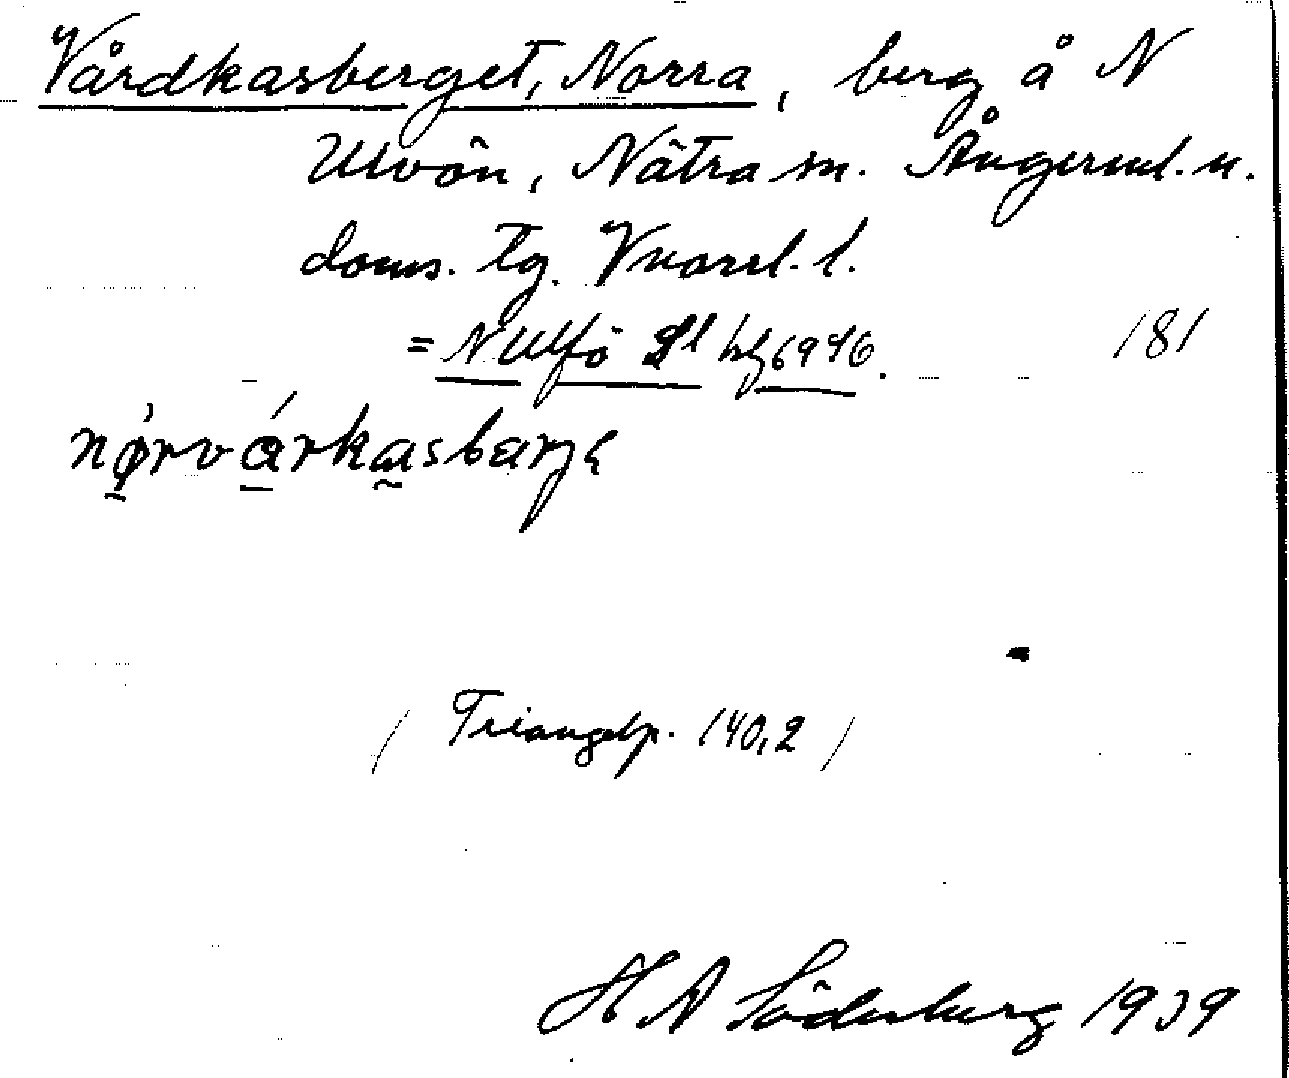 Vårdkasberget, Norra, berg å N
Ulvön, Nätra sn. Ångerml. n.
doms. tg. Vnorrl. l.
= N Ulfö hbl 6946. 181
(Triangelp. 140,2)
H A Söderberg 1939